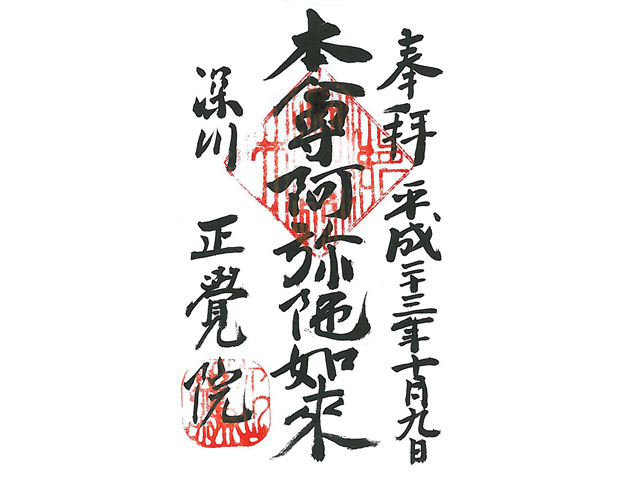 奉拝 平成二十三年十月九日
本尊阿弥陀如来
深川 正覺院